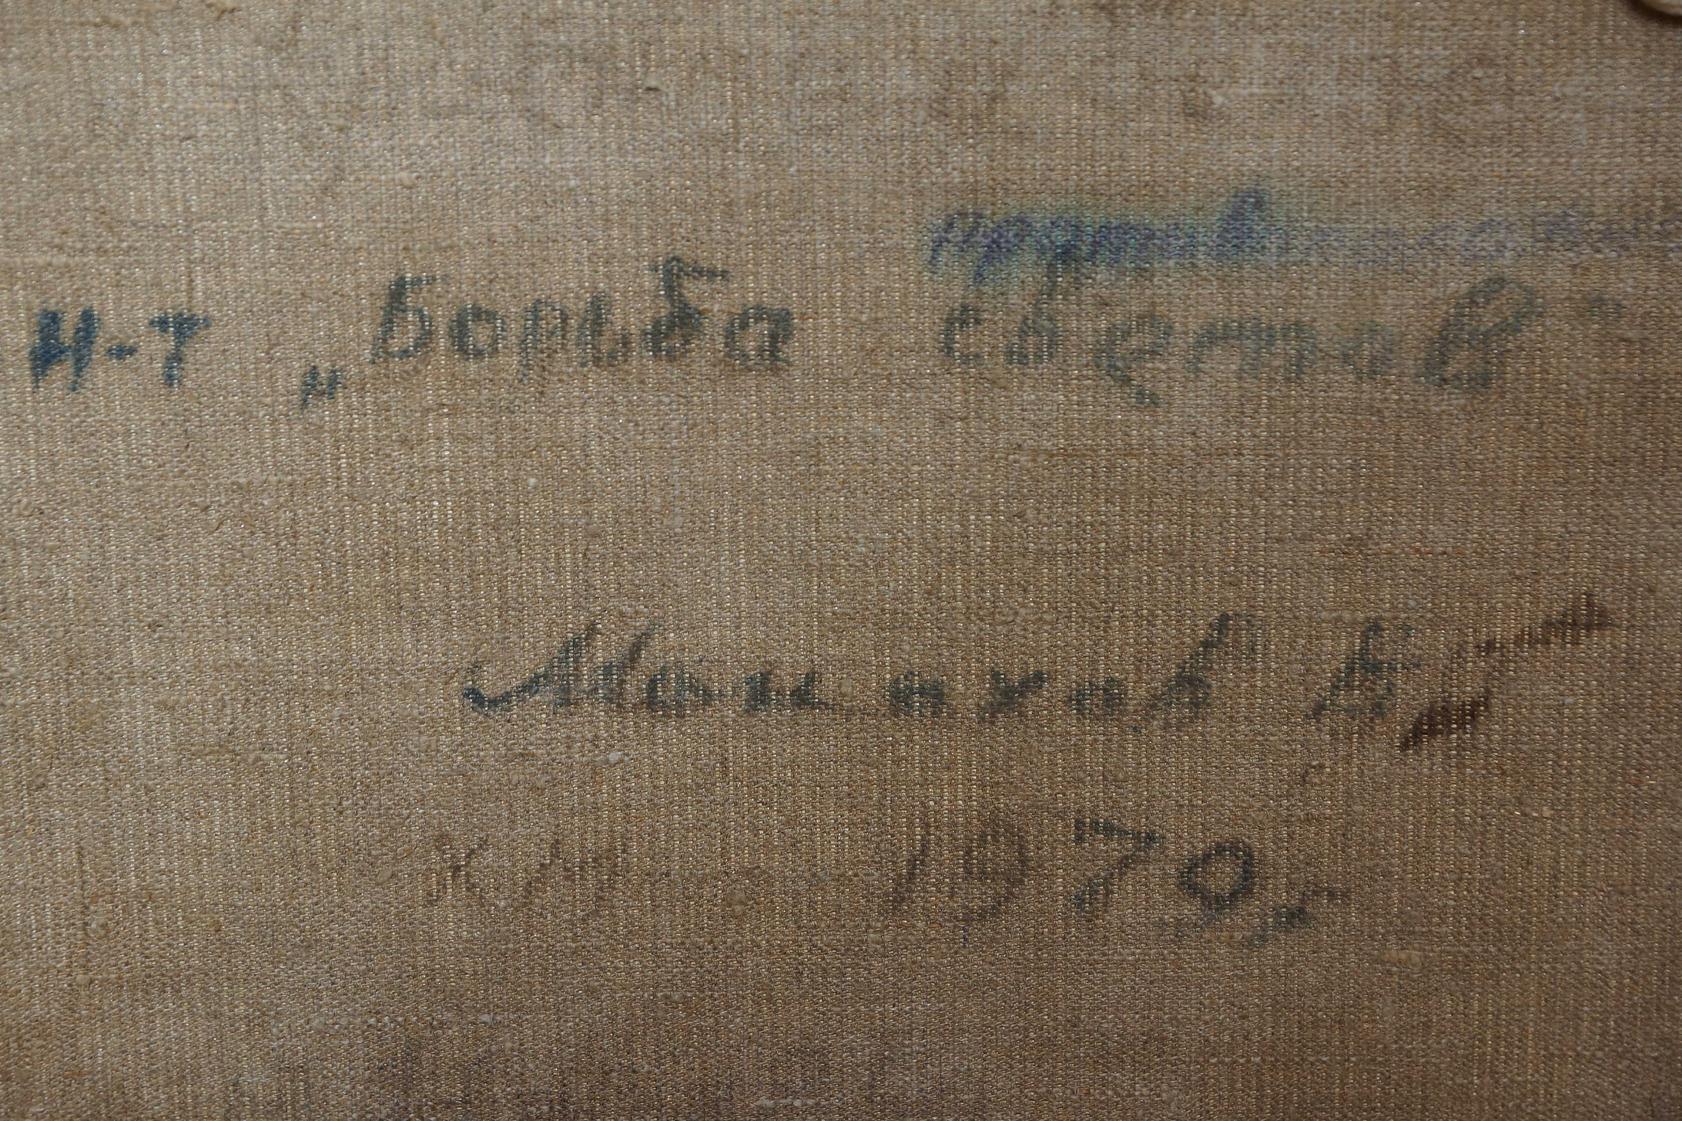 Н-т „Борьба светов"
Монахов В.
х.м. 1979г